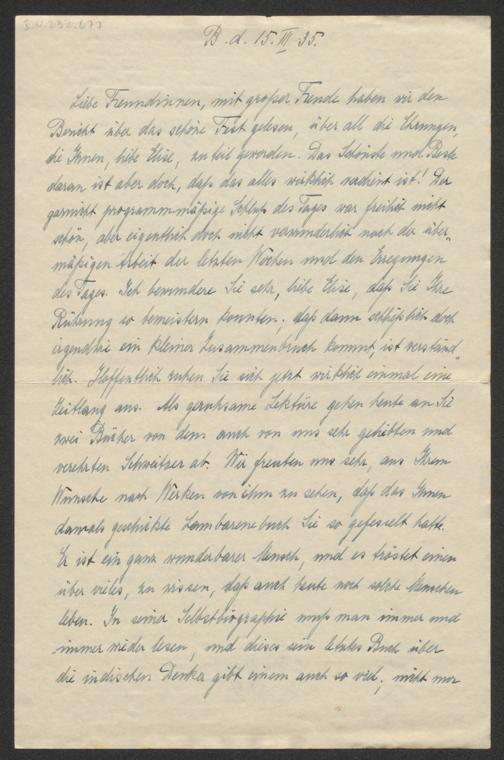 B. d. 15. III 35.
Liebe Freundinnen, mit großer Freude haben wir den
Bericht über das schöne Fest gelesen, über all die Ehrungen,
die Ihnen, liebe Elise, zu teil geworden. Das Schönste und Beste
daran ist aber doch, daß das alles wirklich verdient ist! Der
garnicht programmmäßige Schluß des Tages war freilich nicht
schön, aber eigentlich doch nicht verwunderlich nach der über-
mäßigen Arbeit der letzten Wochen und den Erregungen
des Tages. Ich bewundere Sie sehr, liebe Elise, daß Sie Ihre
Rührung so bemeistern konnten; daß dann schließlich doch
irgendwie ein kleiner Zusammenbruch kommt, ist verständ-
lich. Hoffentlich ruhen Sie sich jetzt wirklich einmal eine
Zeitlang aus. Als geruhsame Lektüre gehen heute an Sie
zwei Bücher von dem auch von uns sehr geliebten und
verehrten Schweitzer ab. Wir freuten uns sehr, aus Ihrem
Wunsche nach Werken von ihm zu sehen, daß das Ihnen
damals geschickte Lambarenebuch Sie so gefesselt hatte.
Er ist ein ganz wunderbarer Mensch, und es tröstet einen
über vieles, zu wissen, daß auch heute noch solche Menschen
leben. In seiner Selbstbiographie muß man immer und
immer wieder lesen, und dieses sein letztes Buch über
die indischen Denker gibt einem auch so viel; nicht nur